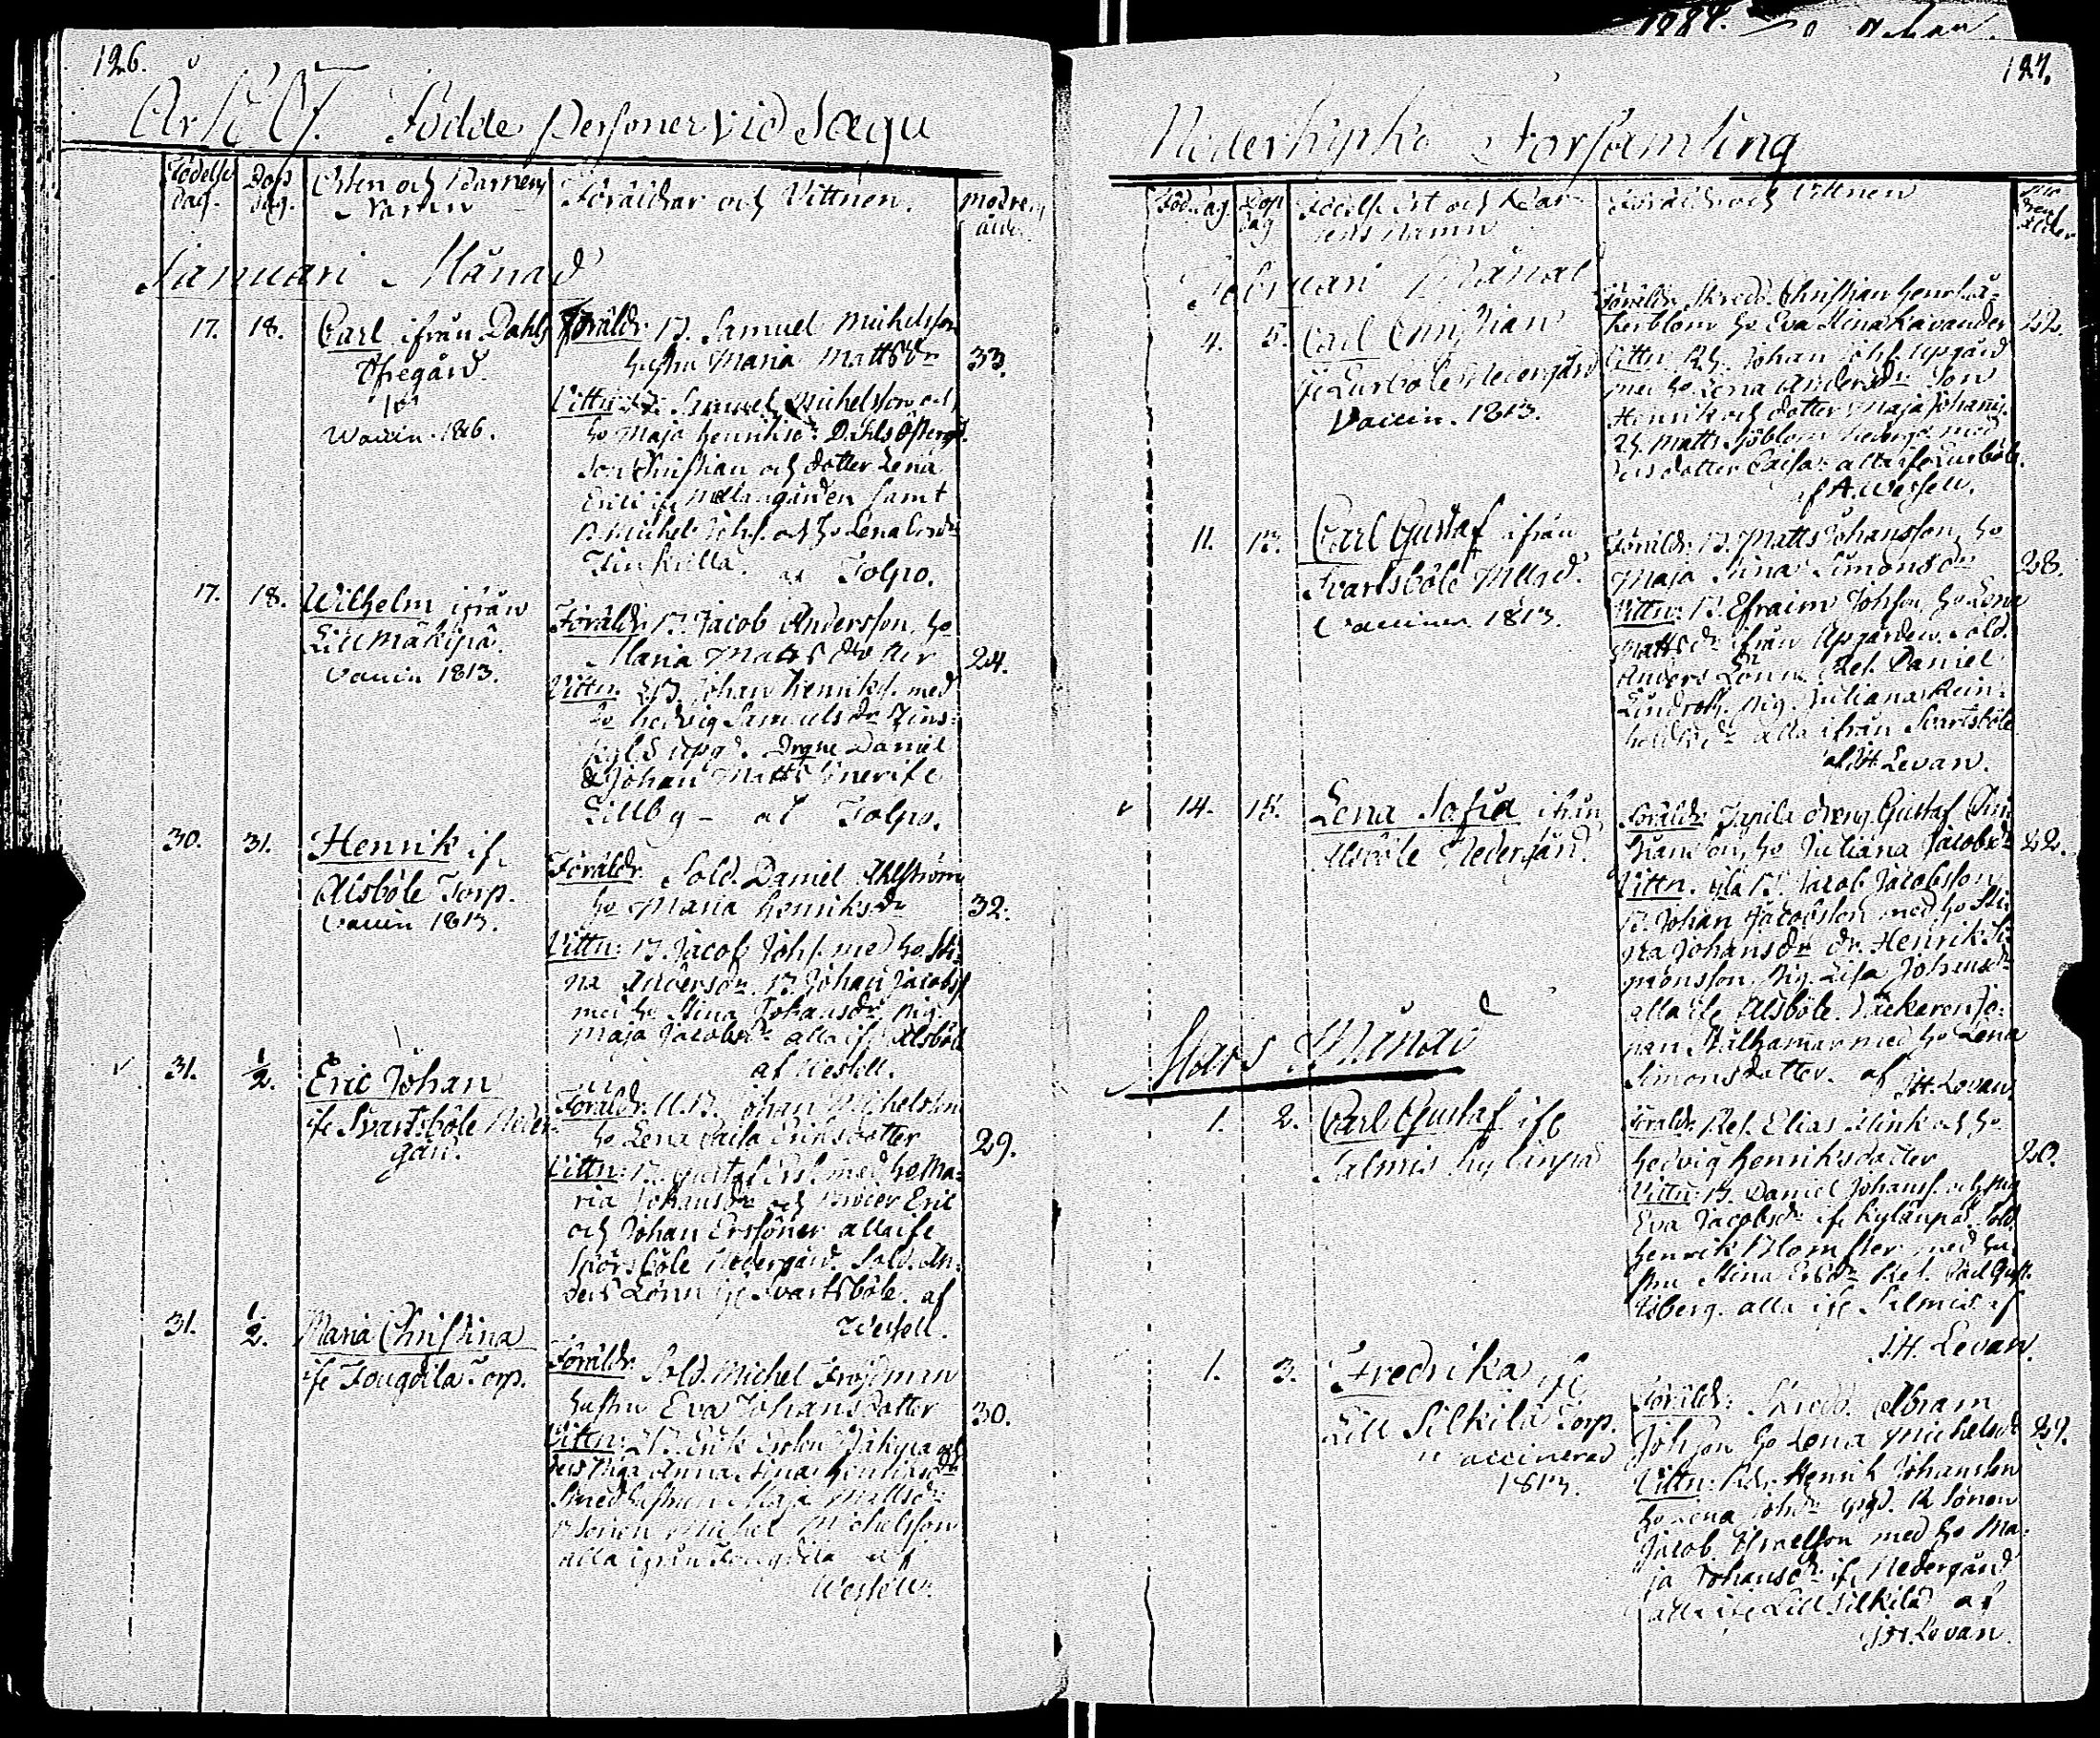 126.
Födde Personer vid Sagu
Födelse dag.
Dop dag.
Orten och Barnens Namn
Föräldrar och Vittnen.
modrens ålder
Januari Månad
17. 18. Carl ifrån Dahls
Öfregård.
Vaccin. 1816.
Föräldr: B. Samuel Michelsson
hustru Maria Mattsdr
33.
Vittn: Samuel Michelsson och
ho Maja Henriksdr
Son Christian och dotter Lena
Mellangården samt
B. Michel Johs. och ho Lena
af Tolpo.
17. 18. Wilhelm ifrån
Lill Mäkipä.
Vaccin 1813.
Föräldr: B. Jacob Andersson, ho
Maria Matts dotter
24.
Vittn. B. Johan Henriks. med
ho Hedvig Samuels dr
Drgne Daniel
& Johan Matts Söner ifr
Lillby - af Tolpo.
30. 31. Henrik if.
Alsböle Torp.
Vaccin 1813.
Föräldr: Sold. Daniel Ahlström
ho Maria Henriksdr
32.
Vittn: B. Jacob Johs. med ho Sti-
na Andersdr. B. Johan Jacobss
med ho Stina Johansdr Pig.
Maja Jacobsdr alla if. Alsböle
af Wessell.
31. 1/2. Eric Johan
ifr Svartsböle Neder
gård.
Föräldr. Johan Michelsson
ho Lena Caisa Eriksdotter
29.
Vittn: B. Gustaf Ers. med ho Ma-
ria Johansdr och Bröder Eric
och Johan Erssöner alla ifr
Nedergård. Sold. An-
ders Lönn ifr Svartsböle. af
Wessell.
31. 1/2. Maria Christina
ifr Fougdila Torp.
Föräldr: Sold. Michel Fröjdman
hustru Eva Johansdotter
30.
Vittn: B. Erik Ersson
Piga Anna Stina Henriksdr
Smedhustrun Maja Mattsdr
B Sonen Michel Michelsson
alla ifrån Fougdila af
Wessell.
127.
Församling
Föd. dag
Dop dag
Födelse Ort och Bar-
nens Namn
Föräldr och Vittnen
Mo drens ålder
Februari Månad
4. 5. Carl Christian
ifr Lurböle Nedergård
Vaccin. 1813.
Föräldr: Skrädd. Christian
ho Eva Stina Lavander
22.
Vittn: Johan Johs. Upgård
med ho Lena Andersdr Son
Henrik och dotter Maja
Matts Sjöblom med
dotter Caisa alla ifr Lurböle.
af A. Wessell.
11. 12. Carl Gustaf ifrån
Svartsböle
Vaccin. 1813.
Föräldr: B. Matts Johansson, ho
Maja Stina Simonsdr
28.
Vittn: B. Efraim Johsson, ho Lena
Mattsdr ifrån Upgården Sold.
Anders Lönn, Ref. Daniel
Lindroth. Pig. Juliana Rein-
alla ifrån Svartsböle
af J H. Levan.
14. 15. Lena Sofia ifrån
Alsböle Nedergård.
Föräldr: Dreng Gustaf Chri
ho Juliana Jacobsdr
22.
Vittn. B. Jacob Jacobsson
B. Johan Jacobsson med ho Sti-
na Johansdr Dr. Henrik Si-
monsson, Pig. Lisa Johansdr
alla ifr Alsböle. Jo-
han Stålhamar med ho Lena
Simonsdotter. af J H. Levan
Mars Månad
1. 2. Carl Gustaf ifr
Salmis
Föräldr: Ref. Elias Mink och ho
Hedvig Henriksdotter
20.
Vittn: B. Daniel Johanss. och Pig
Eva Jacobsdr ifr Kylänpä Sold.
Henrik Blomster med hu-
stru Stina Ersdr Ref. Carl Gust.
alla ifr Salmis. af
J H. Levan.
1. 3. Fredrika ifr
Lill Silkilä Torp.
Vaccinerad
1813.
Föräldr: Skrädd. Abram
Johsson ho Lena Michelsdr
29.
Vittn: Henrik Johansson
ho Lena Johsdr
Jacob Israelsson med ho Ma-
ja Johansdr ifr Nedergård
alla ifr Lill Silkilä af
J H. Levan.